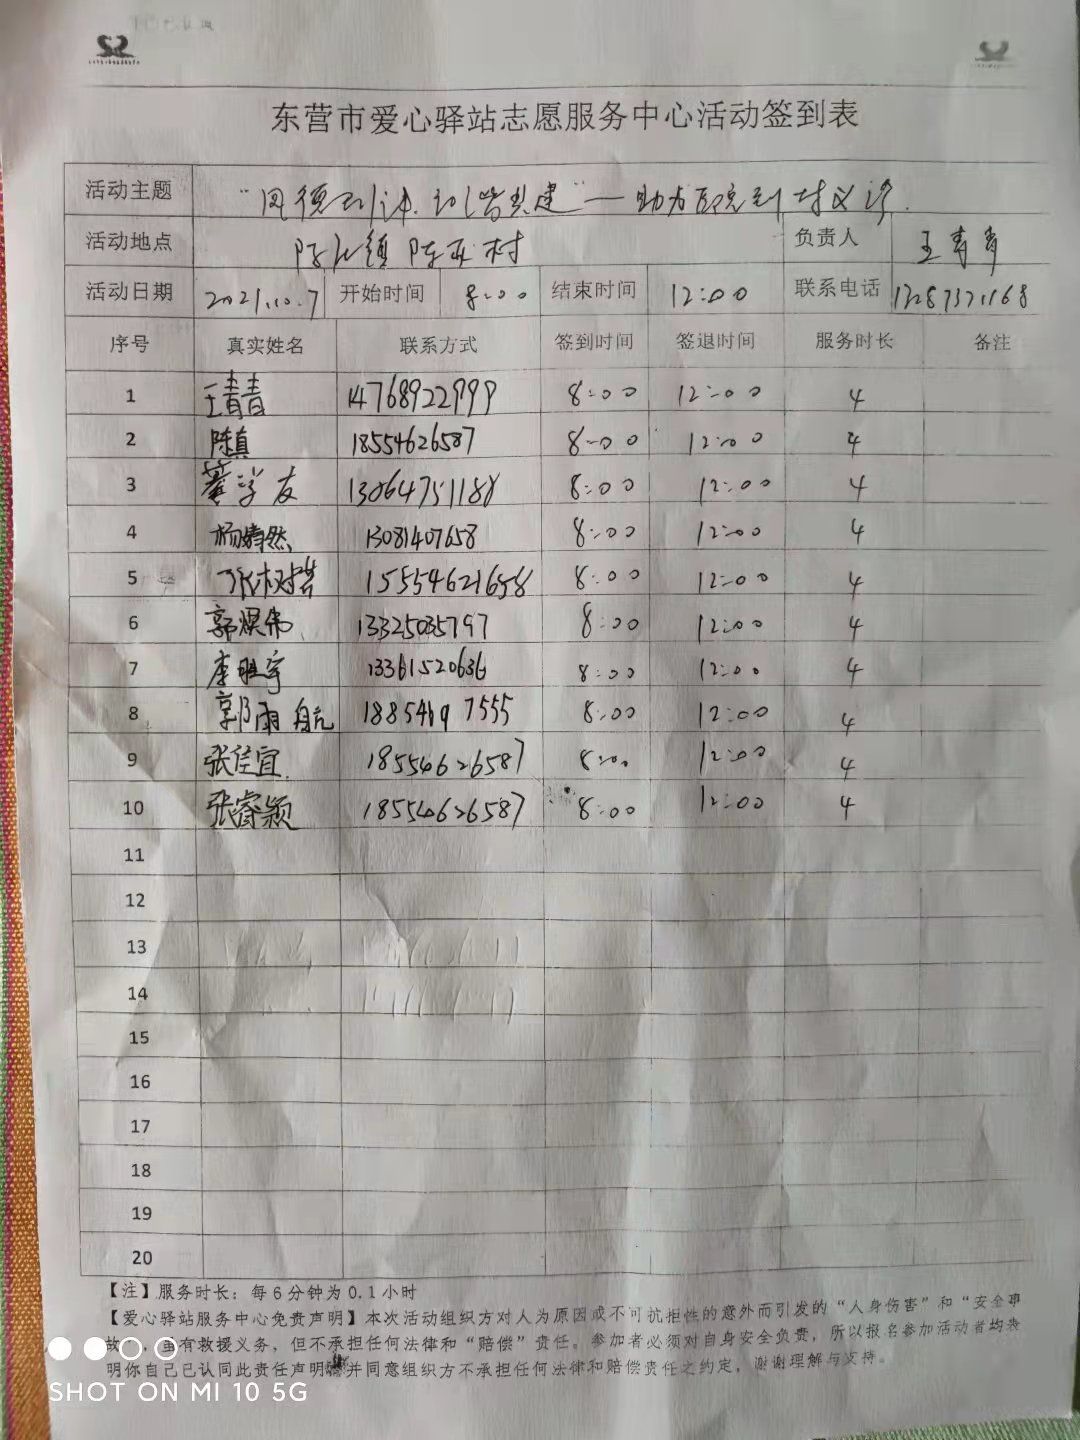 东营市爱心驿站志愿服务中心活动签到表
活动主题 助力医院到村义诊
活动地点 镇 村 负责人 王青青
活动日期 2021.10.7 开始时间 8:00 结束时间 12:00 联系电话
序号 真实姓名 联系方式 签到时间 签退时间 服务时长 备注
1 王青青 14768922999 8:00 12:00 4
2 陈真 18554626587 8:00 12:00 4
3 学友 13064751188 8:00 12:00 4
4 杨婧然 13081407658 8:00 12:00 4
5 15554621658 8:00 12:00 4
6 郭 伟 13325035797 8:00 12:00 4
7 李 宇 13361520636 8:00 12:00 4
8 郭雨航 7555 8:00 12:00 4
9 张佳宜 18554626587 8:00 12:00 4
10 张睿颖 18554626587 8:00 12:00 4
11
12
13
14
15
16
17
18
19
20
【注】服务时长：每6分钟为0.1小时
【爱心驿站服务中心免责声明】本次活动组织方对人为原因或不可抗拒性的意外而引发的“人身伤害”和“安全事
故”，虽有救援义务，但不承担任何法律和“赔偿”责任。参加者必须对自身安全负责，所以报名参加活动者均表
明你自己已认同此责任声明 并同意组织方不承担任何法律和赔偿责任之约定，谢谢理解与支持。
SHOT ON MI 10 5G